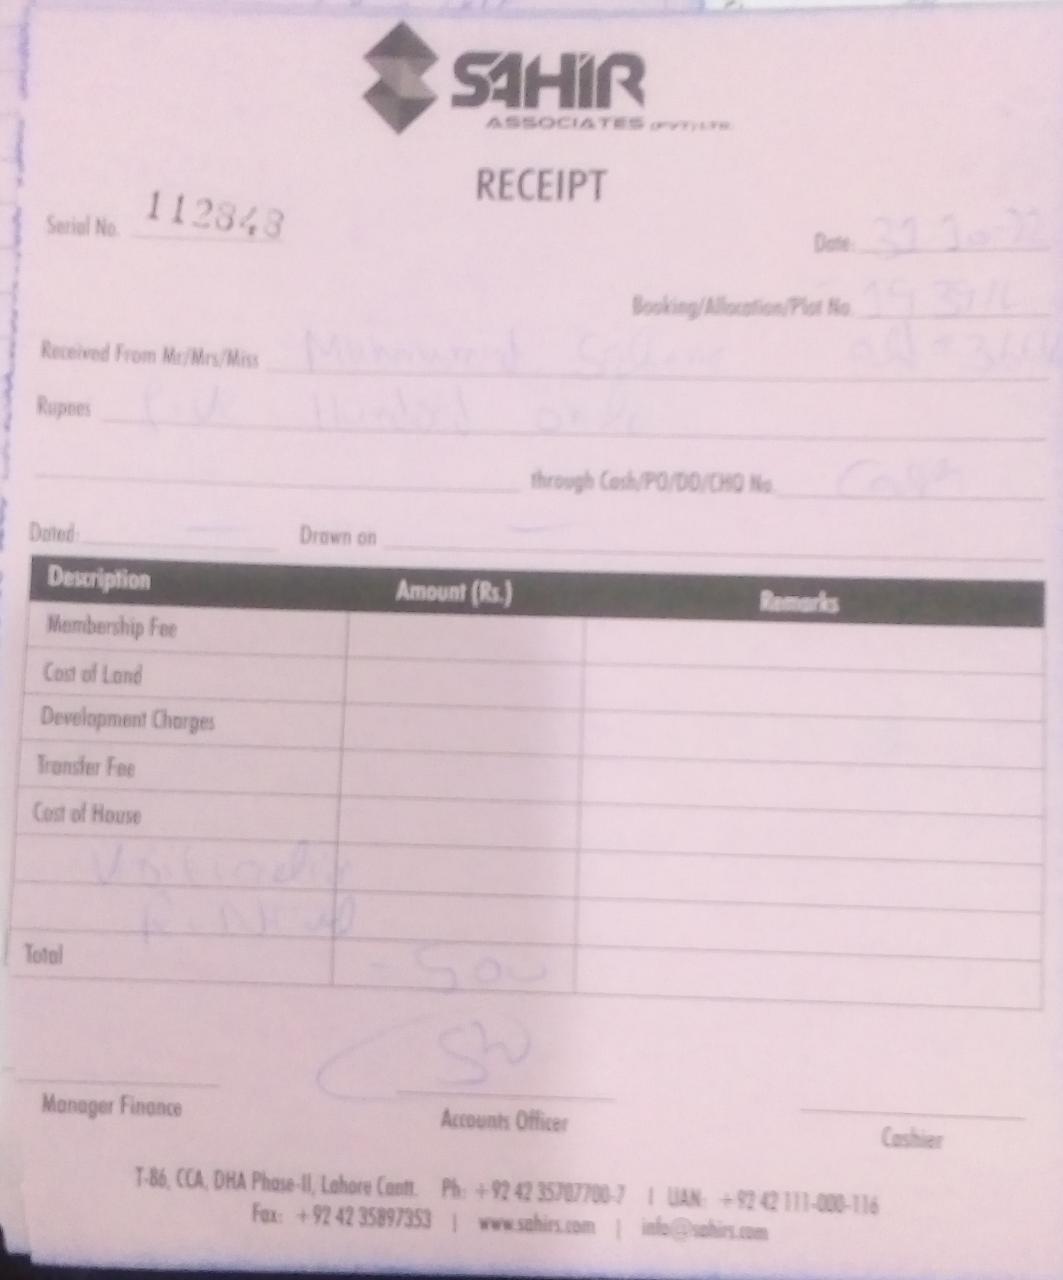 SAHIR
ASSOCIATES (PVT) LTD.
RECEIPT
Serial No. 112848
Date:
Booking/Allocation/Plot No.
Received From Mr/Mrs/Miss
Rupees Five Hundred only
through Cash/PO/DD/CHQ No. Cash
Dated: Drawn on
Description Amount (Rs.) Remarks
Membership Fee
Cost of Land
Development Charges
Transfer Fee
Cost of House
Total 500
Manager Finance Accounts Officer Cashier
T-86, CCA, DHA Phase-II, Lahore Cantt. Ph: +92 42 35707700-7 | UAN: +92 42 111-000-116
Fax: +92 42 35897353 | www.sahirs.com | info@sahirs.com